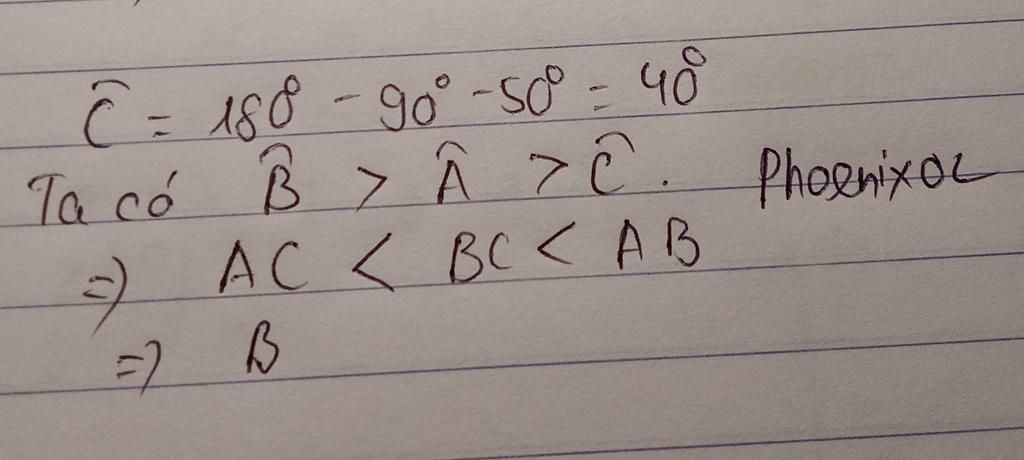 Ĉ = 180° - 90° - 50° = 40°
Ta có B̂ > Â > Ĉ. PhoenixOL
=> AC < BC < AB
=> B